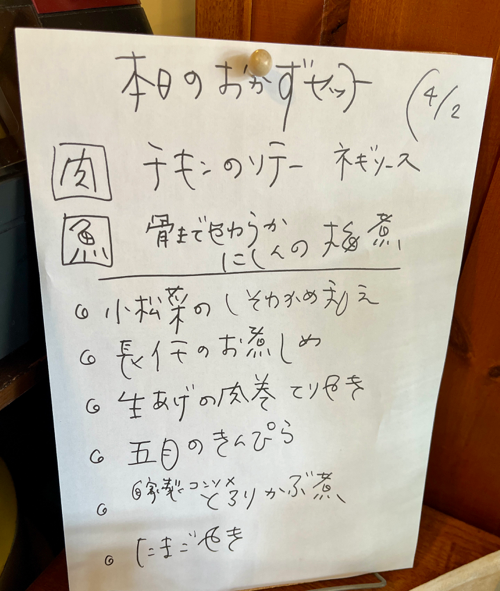 本日のおかずセット (4/2
肉 チキンのソテー ネギソース
魚 骨までやわらか
にしんの 梅煮
小松菜の しそわかめ和え
長イモのお煮しめ
生あげの肉巻 てりやき
五目のきんぴら
自家製コンソメ
とろりかぶ煮
たまごやき